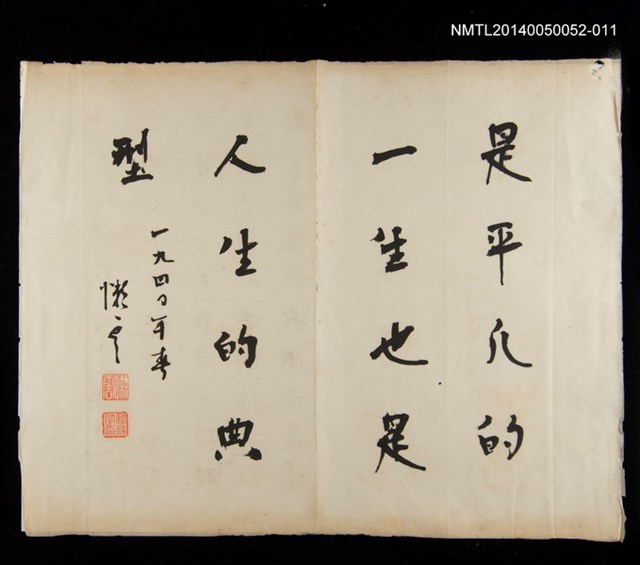 NMTL20140050052-011
是平凡的
一生也是
人生的典
型
一九四〇年春
懶雲